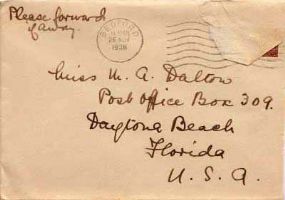 Please forward
if away.
BEDFORD
1938
Miss M. A. Dalton
Post Office Box 309.
Daytona Beach
Florida
U. S. A.